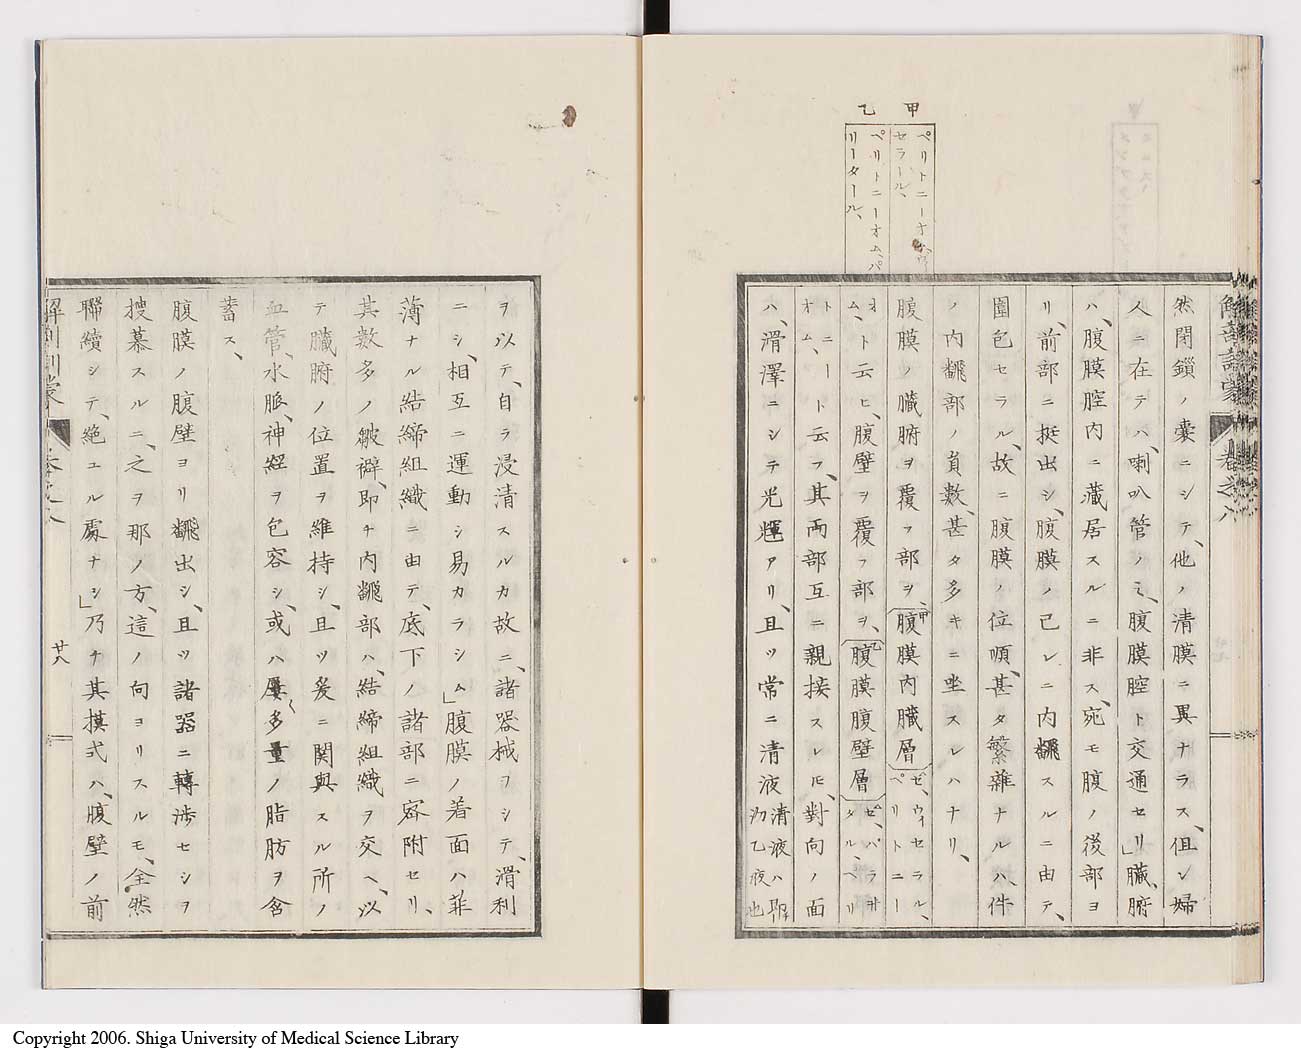 甲
ペリトニーオム、ヴィ
セラール、
乙
ペリトニーオム、パ
リータール、
解剖訓蒙
巻之八
然閉鎖ノ嚢ニシテ、他ノ清膜ニ異ナラス、但シ婦
人ニ在テハ、喇叭管ノミ、腹膜腔ト交通セリ」臓、腑
ハ、腹膜腔内ニ藏居スルニ非ス、宛モ腹ノ後部ヨ
リ、前部ニ挺出シ、腹膜ノ己レニ内飜スルニ由テ、
圍包セラル、故ニ腹膜ノ位順、甚タ繁雜ナルハ、件
ノ内飜部ノ員數、甚タ多キニ坐スルハナリ、
腹膜ノ臓腑ヲ覆フ部ヲ、甲腹膜内臓層ゼ、ウィセラル、ペリトニー
オム、ト云ヒ、腹壁ヲ覆フ部ヲ、乙腹膜腹壁層ゼ、パラヰタル、ペリ
トニーオム、ト云フ、其両部互ニ親接スレ𪜈、對向ノ面
ハ、滑澤ニシテ光輝アリ、且ツ常ニ清液清液ハ即チ乙液也
ヲ以テ、自ラ浸清スルカ故ニ、諸器械ヲシテ、滑利
ニシ、相互ニ運動シ易カラシム」腹膜ノ着面ハ菲
薄ナル結締組織ニ由テ、底下ノ諸部ニ密附セリ、
其數多ノ皺襞、即チ内飜部ハ、結締組織ヲ交ヘ、以
テ臓腑ノ位置ヲ維持シ、且ツ爰ニ関與スル所ノ
血管、水脈、神經ヲ包容シ、或ハ屡々多量ノ脂肪ヲ含
蓄ス、
腹膜ノ腹壁ヨリ飜出シ、且ツ諸器ニ轉渉セシヲ
捜慕スルニ、之ヲ那ノ方、這ノ向ヨリスルモ、全然
聯續シテ、絶ユル處ナシ」乃チ其摸式ハ、腹壁ノ前
解剖訓蒙
巻之八
廿八
Copyright 2006. Shiga University of Medical Science Library